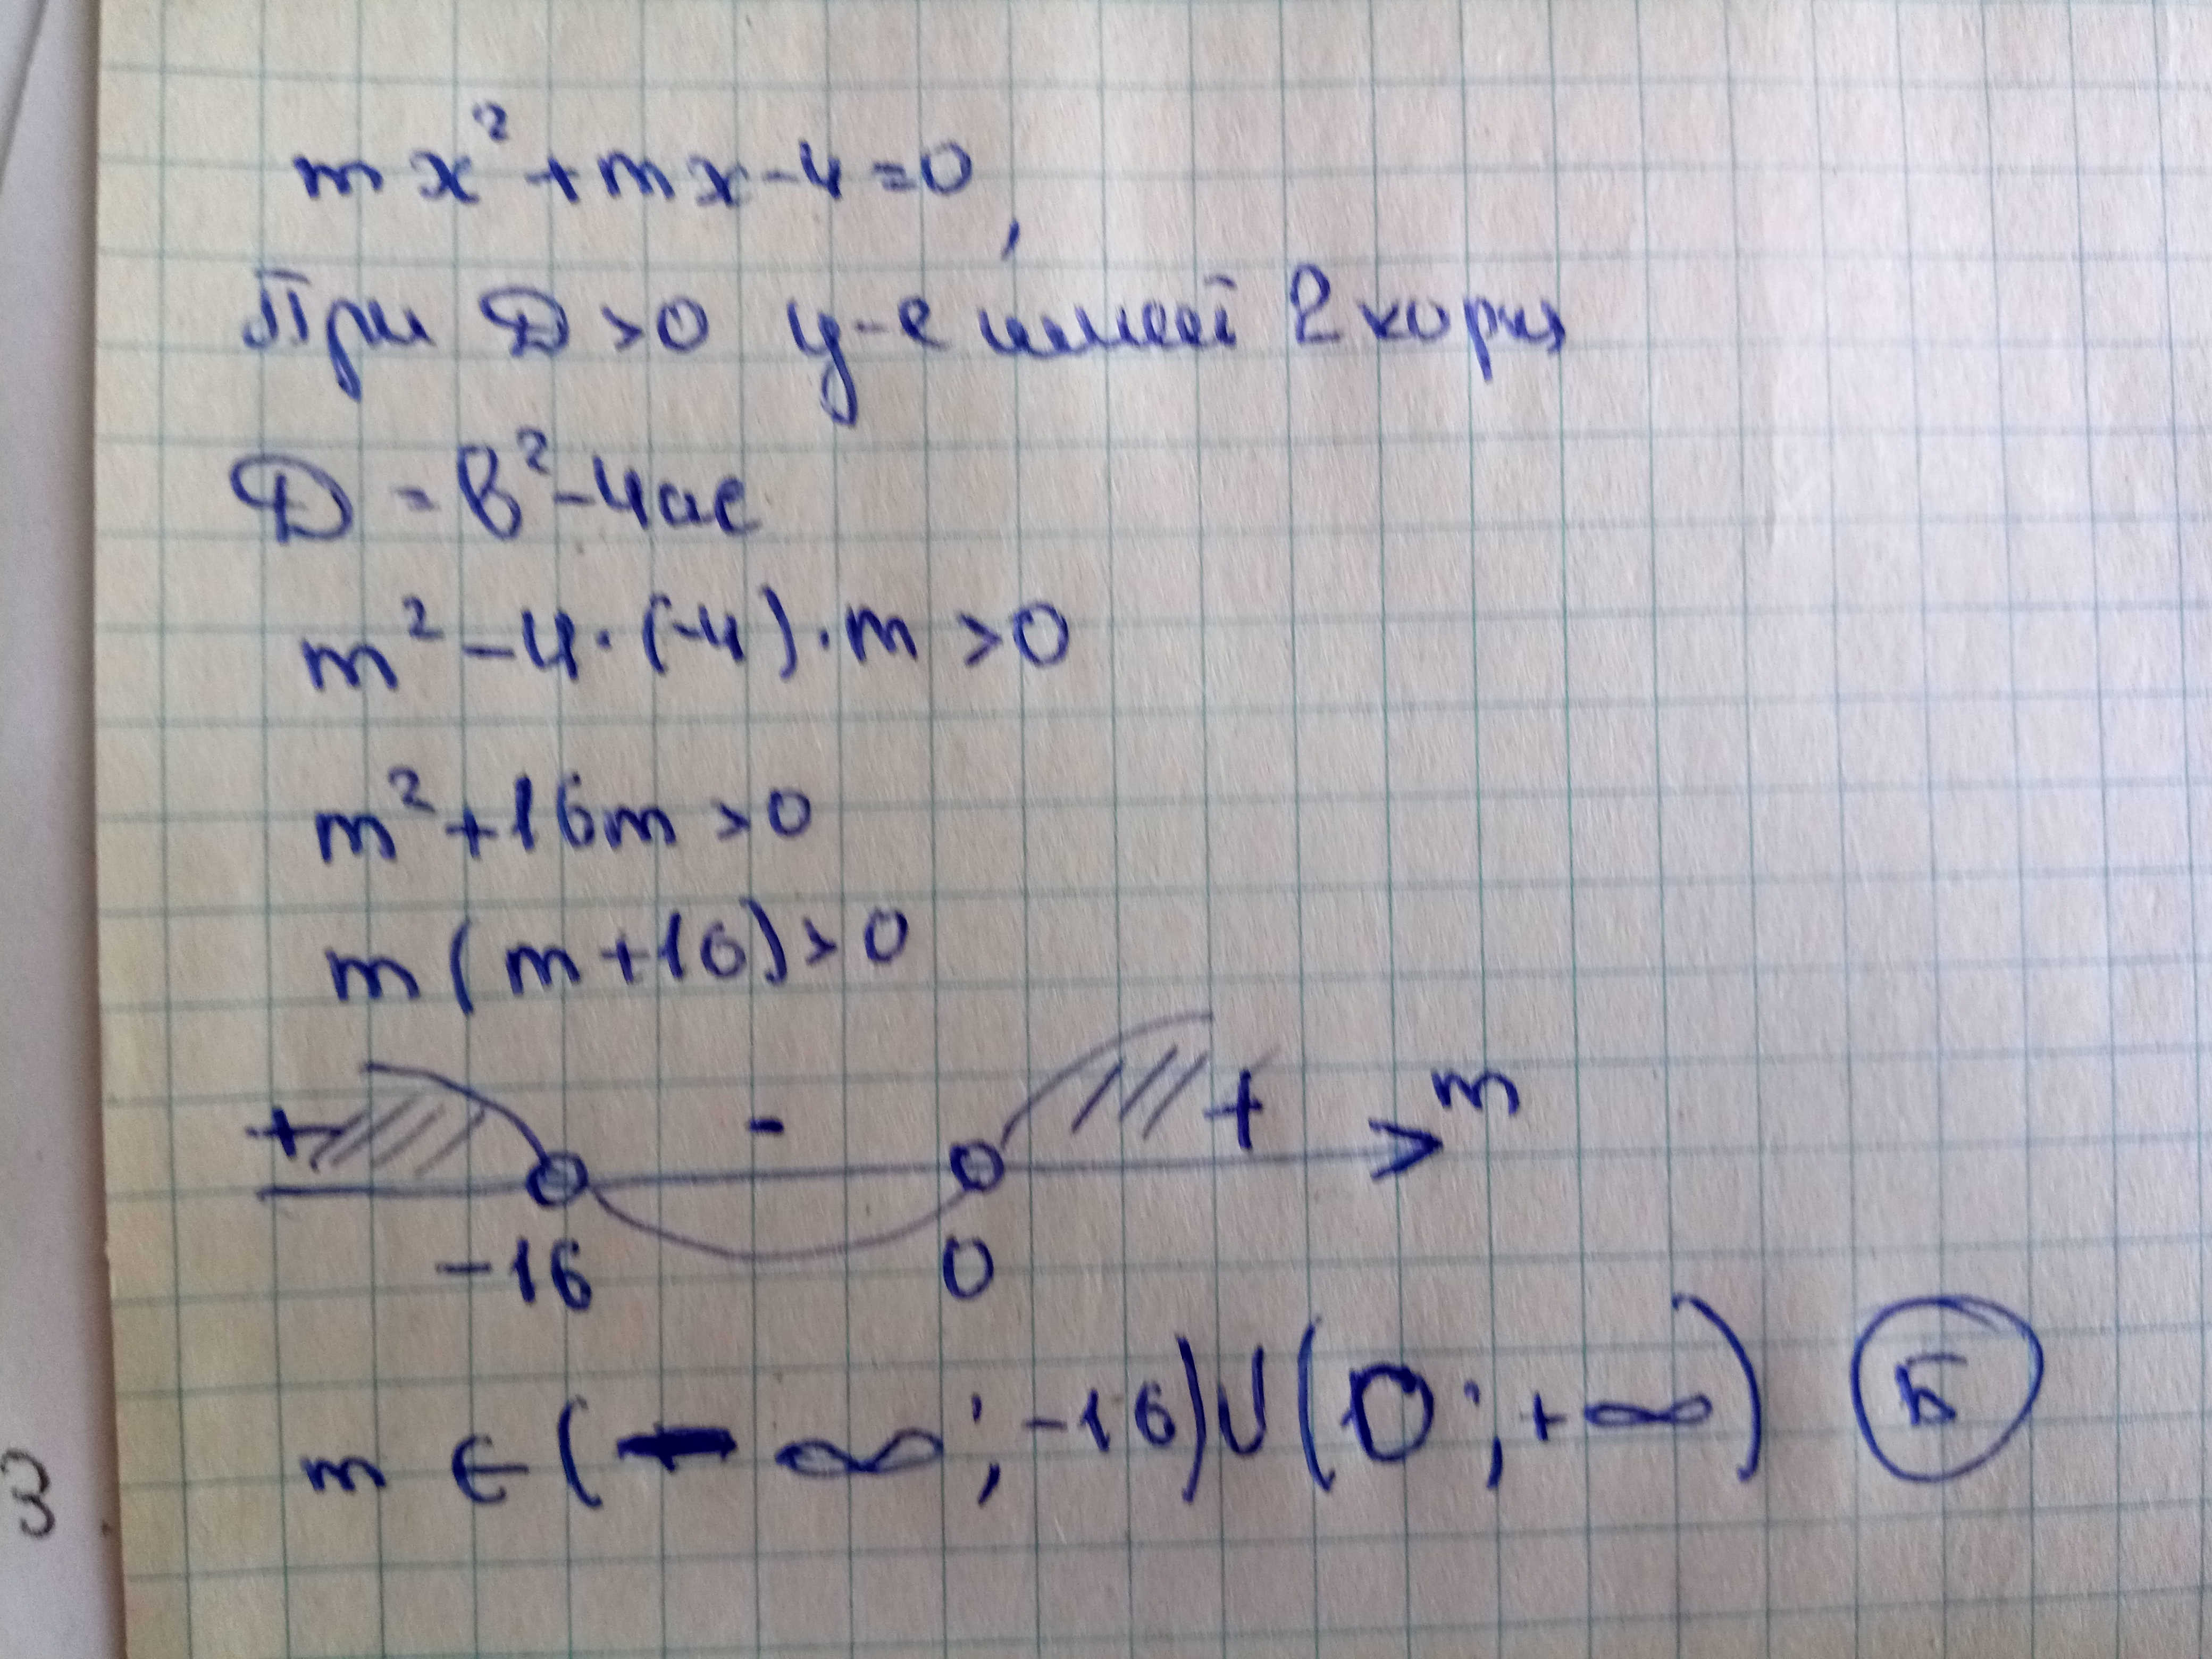 mx²+mx-4=0,
При D>0 у-е имеет 2 корня
D=b²-4ac
m²-4·(-4)·m>0
m²+16m>0
m(m+16)>0
+ - + m
-16 0
m∈(-∞;-16)∪(0;+∞) Б
3